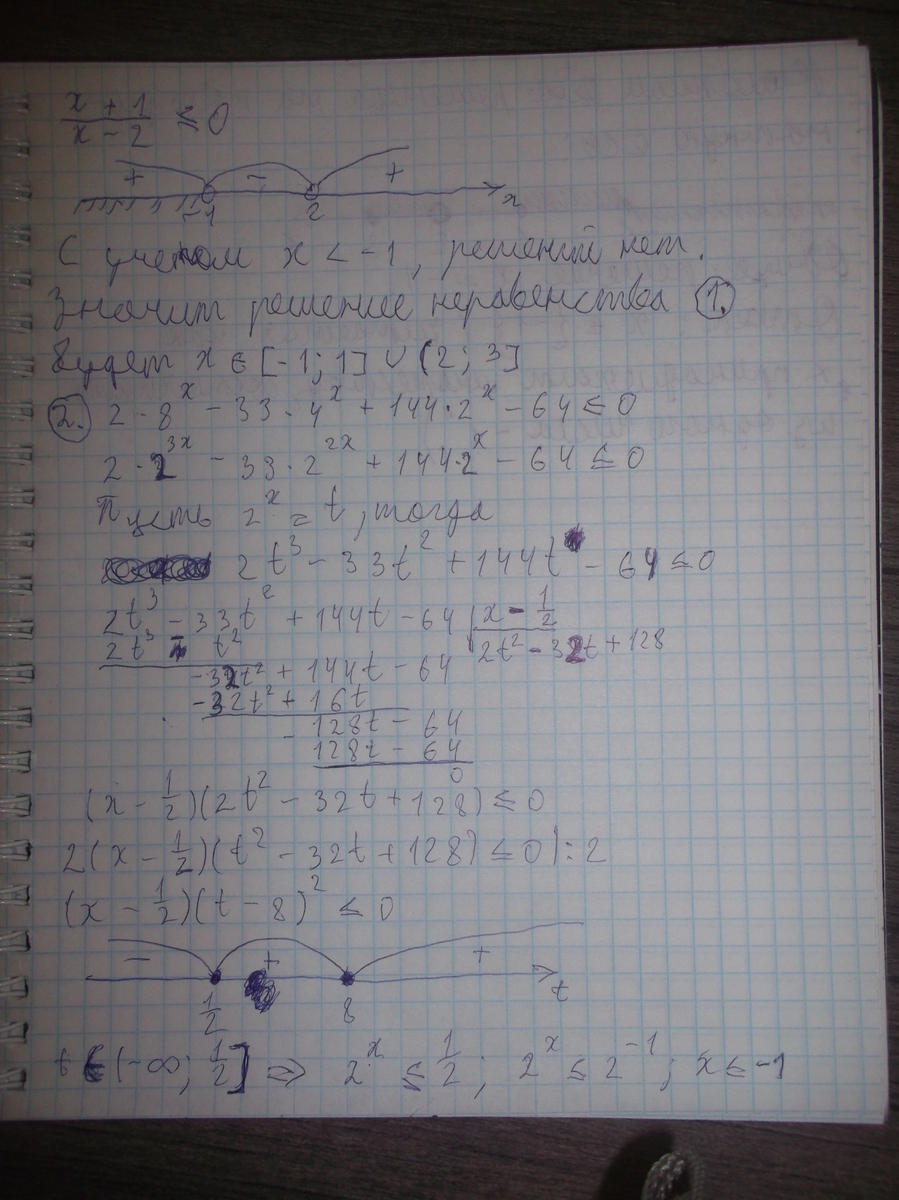 x + 1 / x - 2 ≤ 0
+ - +
-1 2 x
С учетом x < -1, решений нет.
Значит решение неравенства 1.
будет x ∈ [-1; 1] ∪ (2; 3]
2. 2 · 8^x - 33 · 4^x + 144 · 2^x - 64 ≤ 0
2 · 2^3x - 33 · 2^2x + 144 · 2^x - 64 ≤ 0
Пусть 2^x = t, тогда
2t^3 - 33t^2 + 144t - 64 ≤ 0
2t^3 - 33t^2 + 144t - 64 | x - 1/2
2t^3 - t^2 2t^2 - 32t + 128
-32t^2 + 144t - 64
-32t^2 + 16t
- 128t - 64
128t - 64
0
(x - 1/2)(2t^2 - 32t + 128) ≤ 0
2(x - 1/2)(t^2 - 32t + 128) ≤ 0 | : 2
(x - 1/2)(t - 8)^2 ≤ 0
- + +
1/2 8 t
t ∈ (-∞; 1/2] ⇒ 2^x ≤ 1/2; 2^x ≤ 2^-1; x ≤ -1